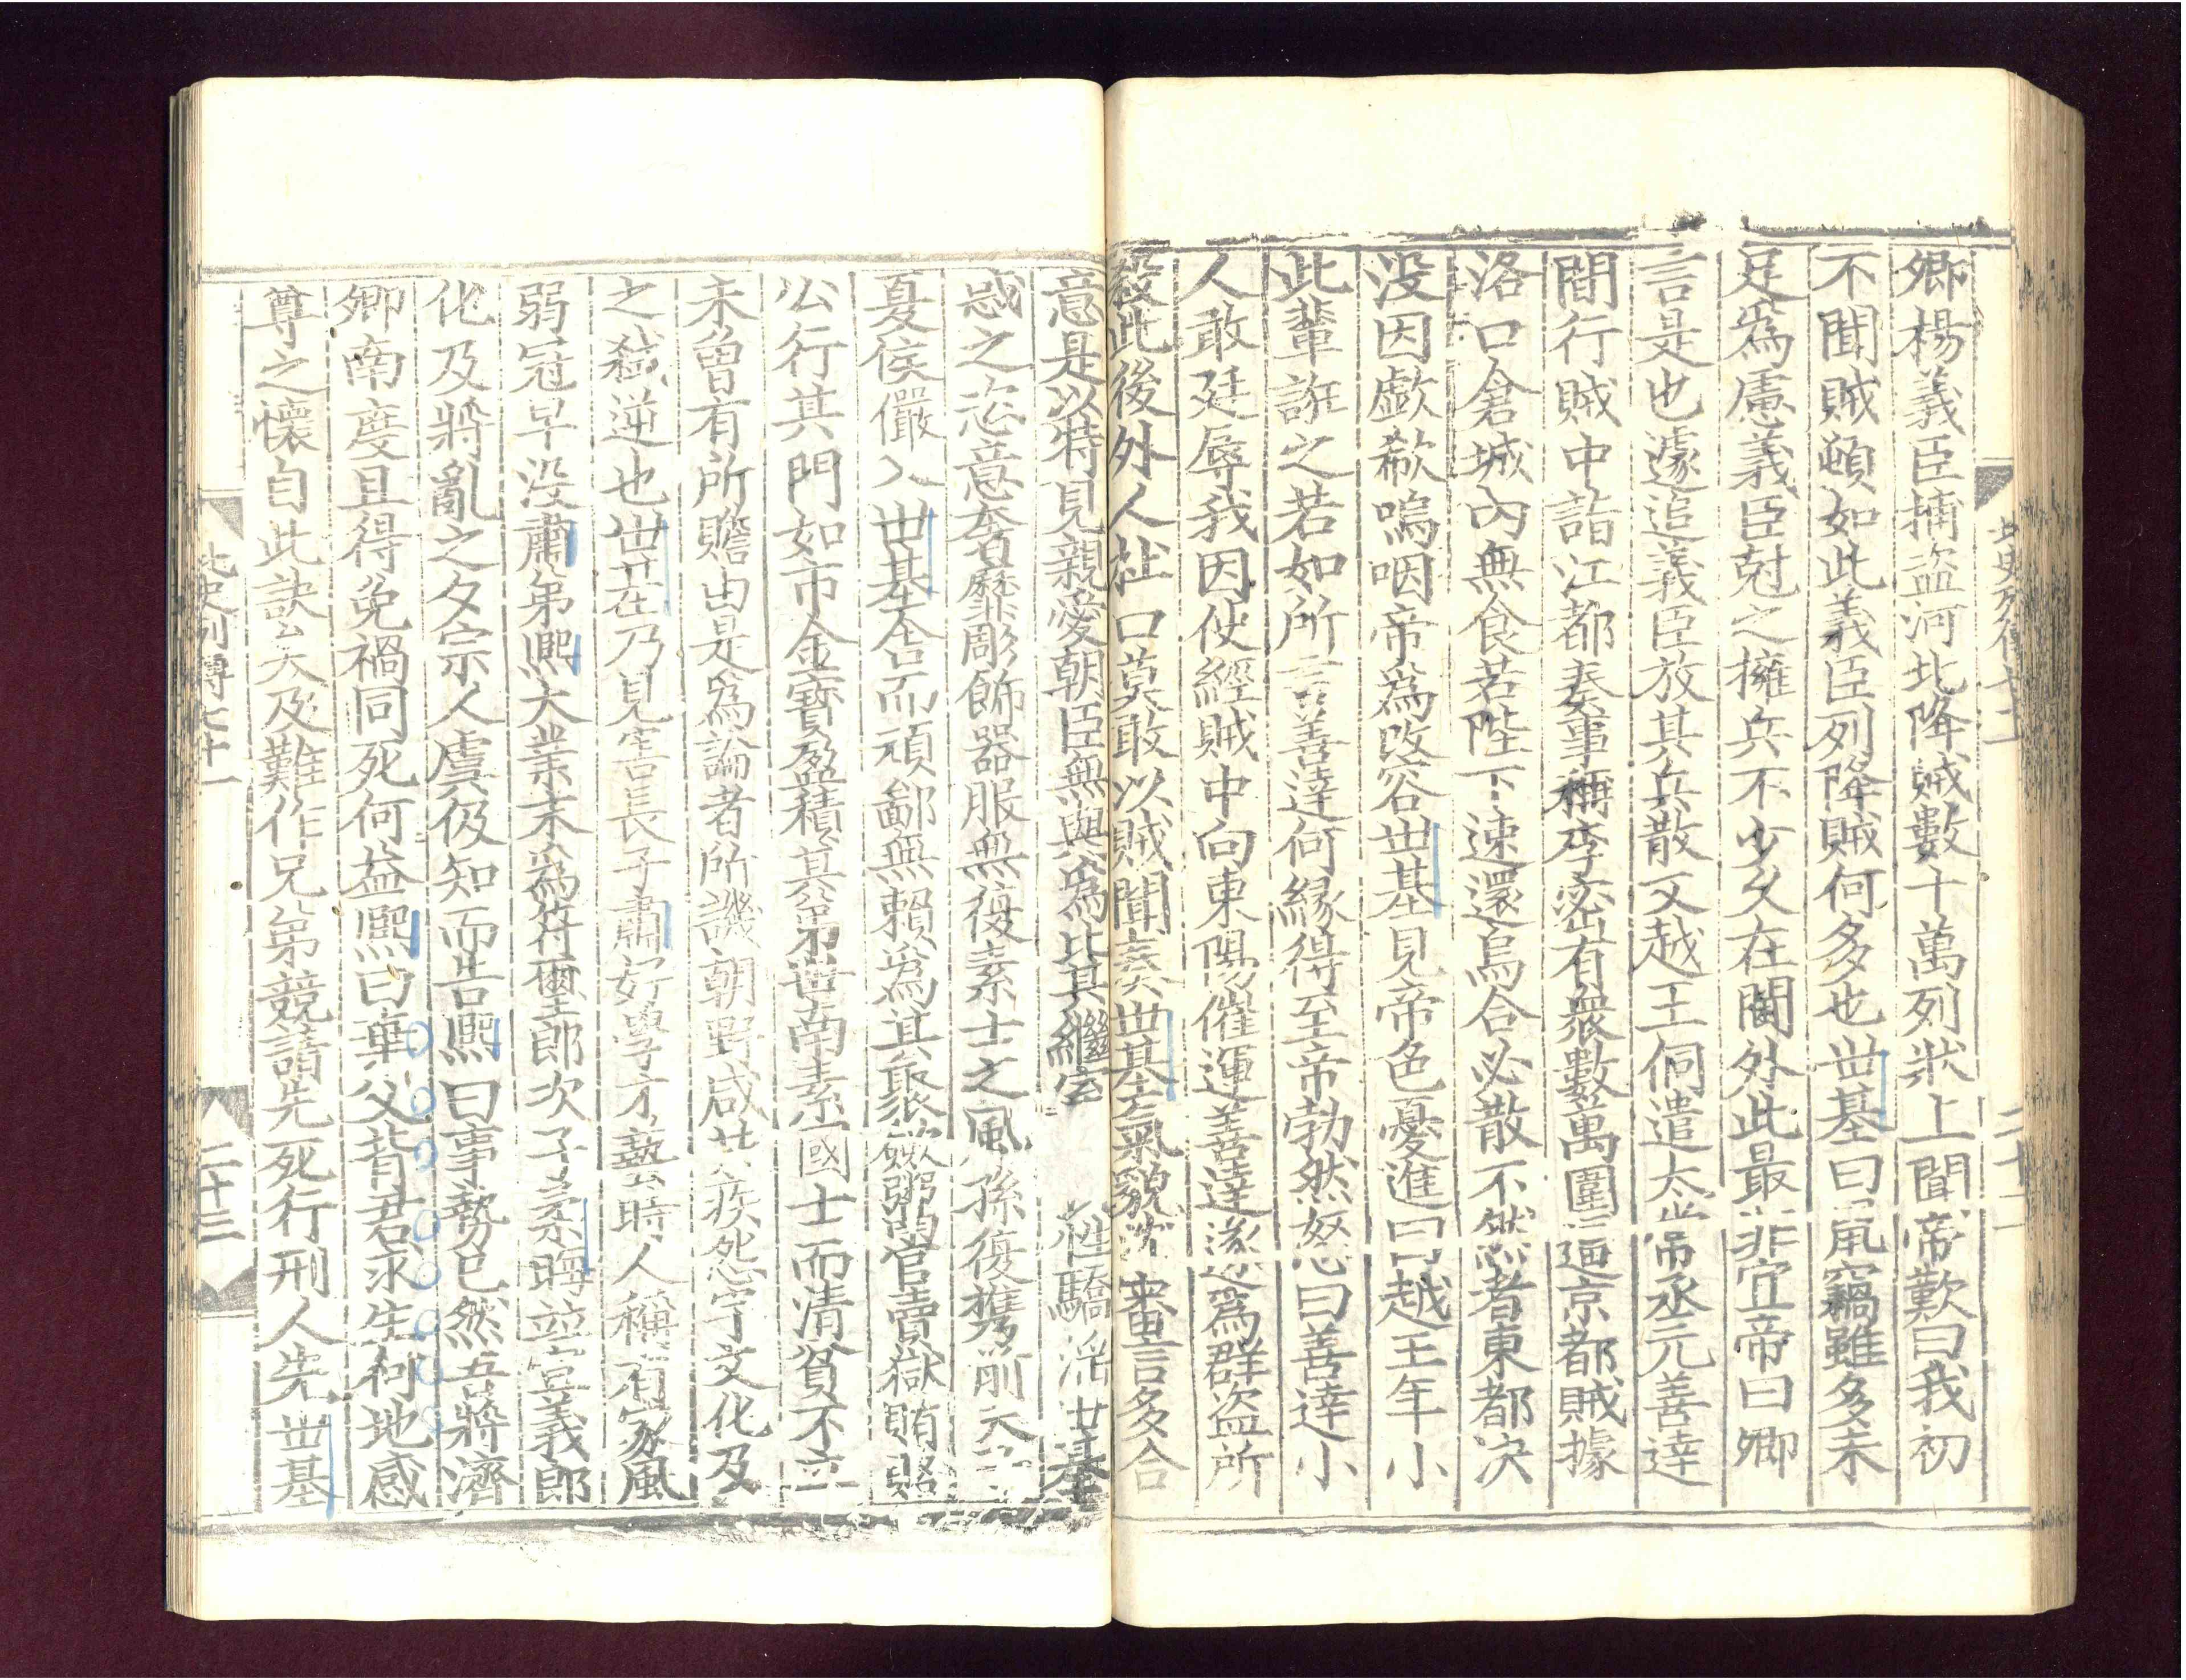 北史列傳七十一
二十二
卿楊義臣捕盜河北降賊數十萬列狀上聞帝歎曰我初
不聞賊頓如此義臣列降賊何多也世基曰鼠竊雖多未
足爲慮義臣尅之擁兵不少久在閫外此最非宜帝曰卿
言是也遽追義臣放其兵散又越王侗遣太常丞元善達
間行賊中詣江都奏事稱李密有衆數萬圍逼京都賊據
洛口倉城內無食若陛下速還烏合必散不然者東都決
沒因歔欷嗚咽帝爲改容世基見帝色憂進曰越王年小
此輩誑之若如所言善達何緣得至帝勃然怒曰善達小
人敢廷辱我因使經賊中向東陽催運善達遂爲群盜所
殺此後外人杜口莫敢以賊聞奏世基氣貌沈審言多合
意是以特見親愛朝臣無與爲比其繼室 性驕淫世基
惑之恣意奢靡彫飾器服無復素士之風孫復攜前夫子
夏侯儼入世基舍而頑鄙無賴爲其聚歛鬻官賣獄賄賂
公行其門如市金寶盈積其弟世南素國士而清貧不立
未曾有所贍由是爲論者所譏朝野咸共疾怨宇文化及
之弒逆也世基乃見害長子肅好學才藝時人稱有家風
弱冠早沒肅弟熙大業末爲符璽郎次子柔晦並宣義郎
化及將亂之夕宗人虞伋知而告熙曰事勢已然吾將濟
卿南度且得免禍同死何益熙曰棄父背君求生何地感
尊之懷自此訣矣及難作兄弟競請先死行刑人先世基
北史列傳七十一
二十三